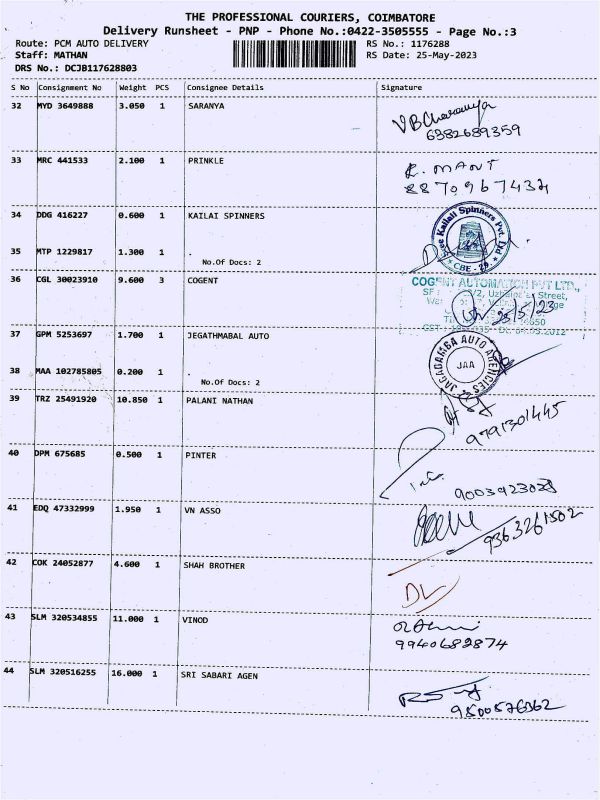 THE PROFESSIONAL COURIERS, COIMBATORE
Delivery Runsheet - PNP - Phone No.:0422-3505555 - Page No.:3
Route: PCM AUTO DELIVERY RS No.: 1176288
Staff: MATHAN RS Date: 25-May-2023
DRS No.: DCJB117628803
S No Consignment No Weight PCS Consignee Details Signature
32 MYD 3649888 3.050 1 SARANYA
6382689359
33 MRC 441533 2.100 1 PRINKLE
R. MANT
8870967432
34 DDG 416227 0.600 1 KAILAI SPINNERS
Sree Kailaii Spinners Pvt. Ltd
CBE - 29.
35 MTP 1229817 1.300 1 .
No.Of Docs: 2
36 CGL 30023910 9.600 3 COGENT
COGENT AUTOMATION PVT LTD.,
Street,
25/5/23
37 GPM 5253697 1.700 1 JEGATHMABAL AUTO
JAGADAMBA AUTO AGENCIES
JAA
38 MAA 102785805 0.200 1 .
No.Of Docs: 2
39 TRZ 25491920 10.850 1 PALANI NATHAN
9791301445
40 DPM 675685 0.500 1 PINTER
9003923028
41 EDQ 47332999 1.950 1 VN ASSO
9363261502
42 COK 24052877 4.600 1 SHAH BROTHER
DL
43 SLM 320534855 11.000 1 VINOD
9940682874
44 SLM 320516255 16.000 1 SRI SABARI AGEN
9500576362